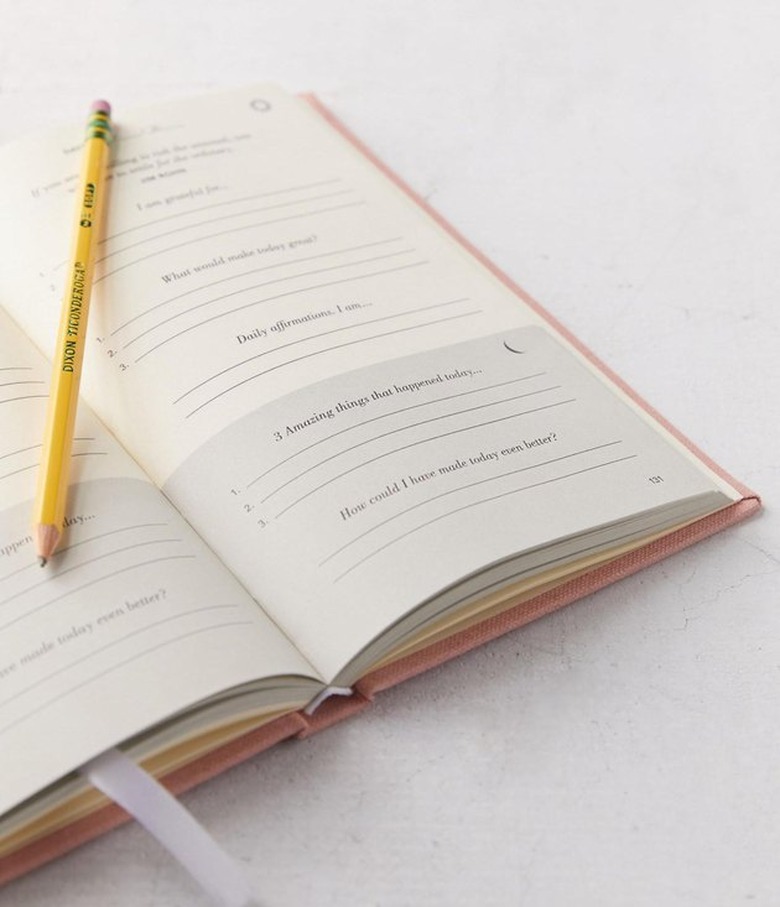 If you are willing to risk the unusual, you
to settle for the ordinary.
JIM ROHN
I am grateful for...
1.
2.
What would make today great?
1.
2.
3.
Daily affirmations. I am...
3 Amazing things that happened today...
1.
2.
3.
How could I have made today even better?
131
DIXON TICONDEROGA
day...
ve made today even better?